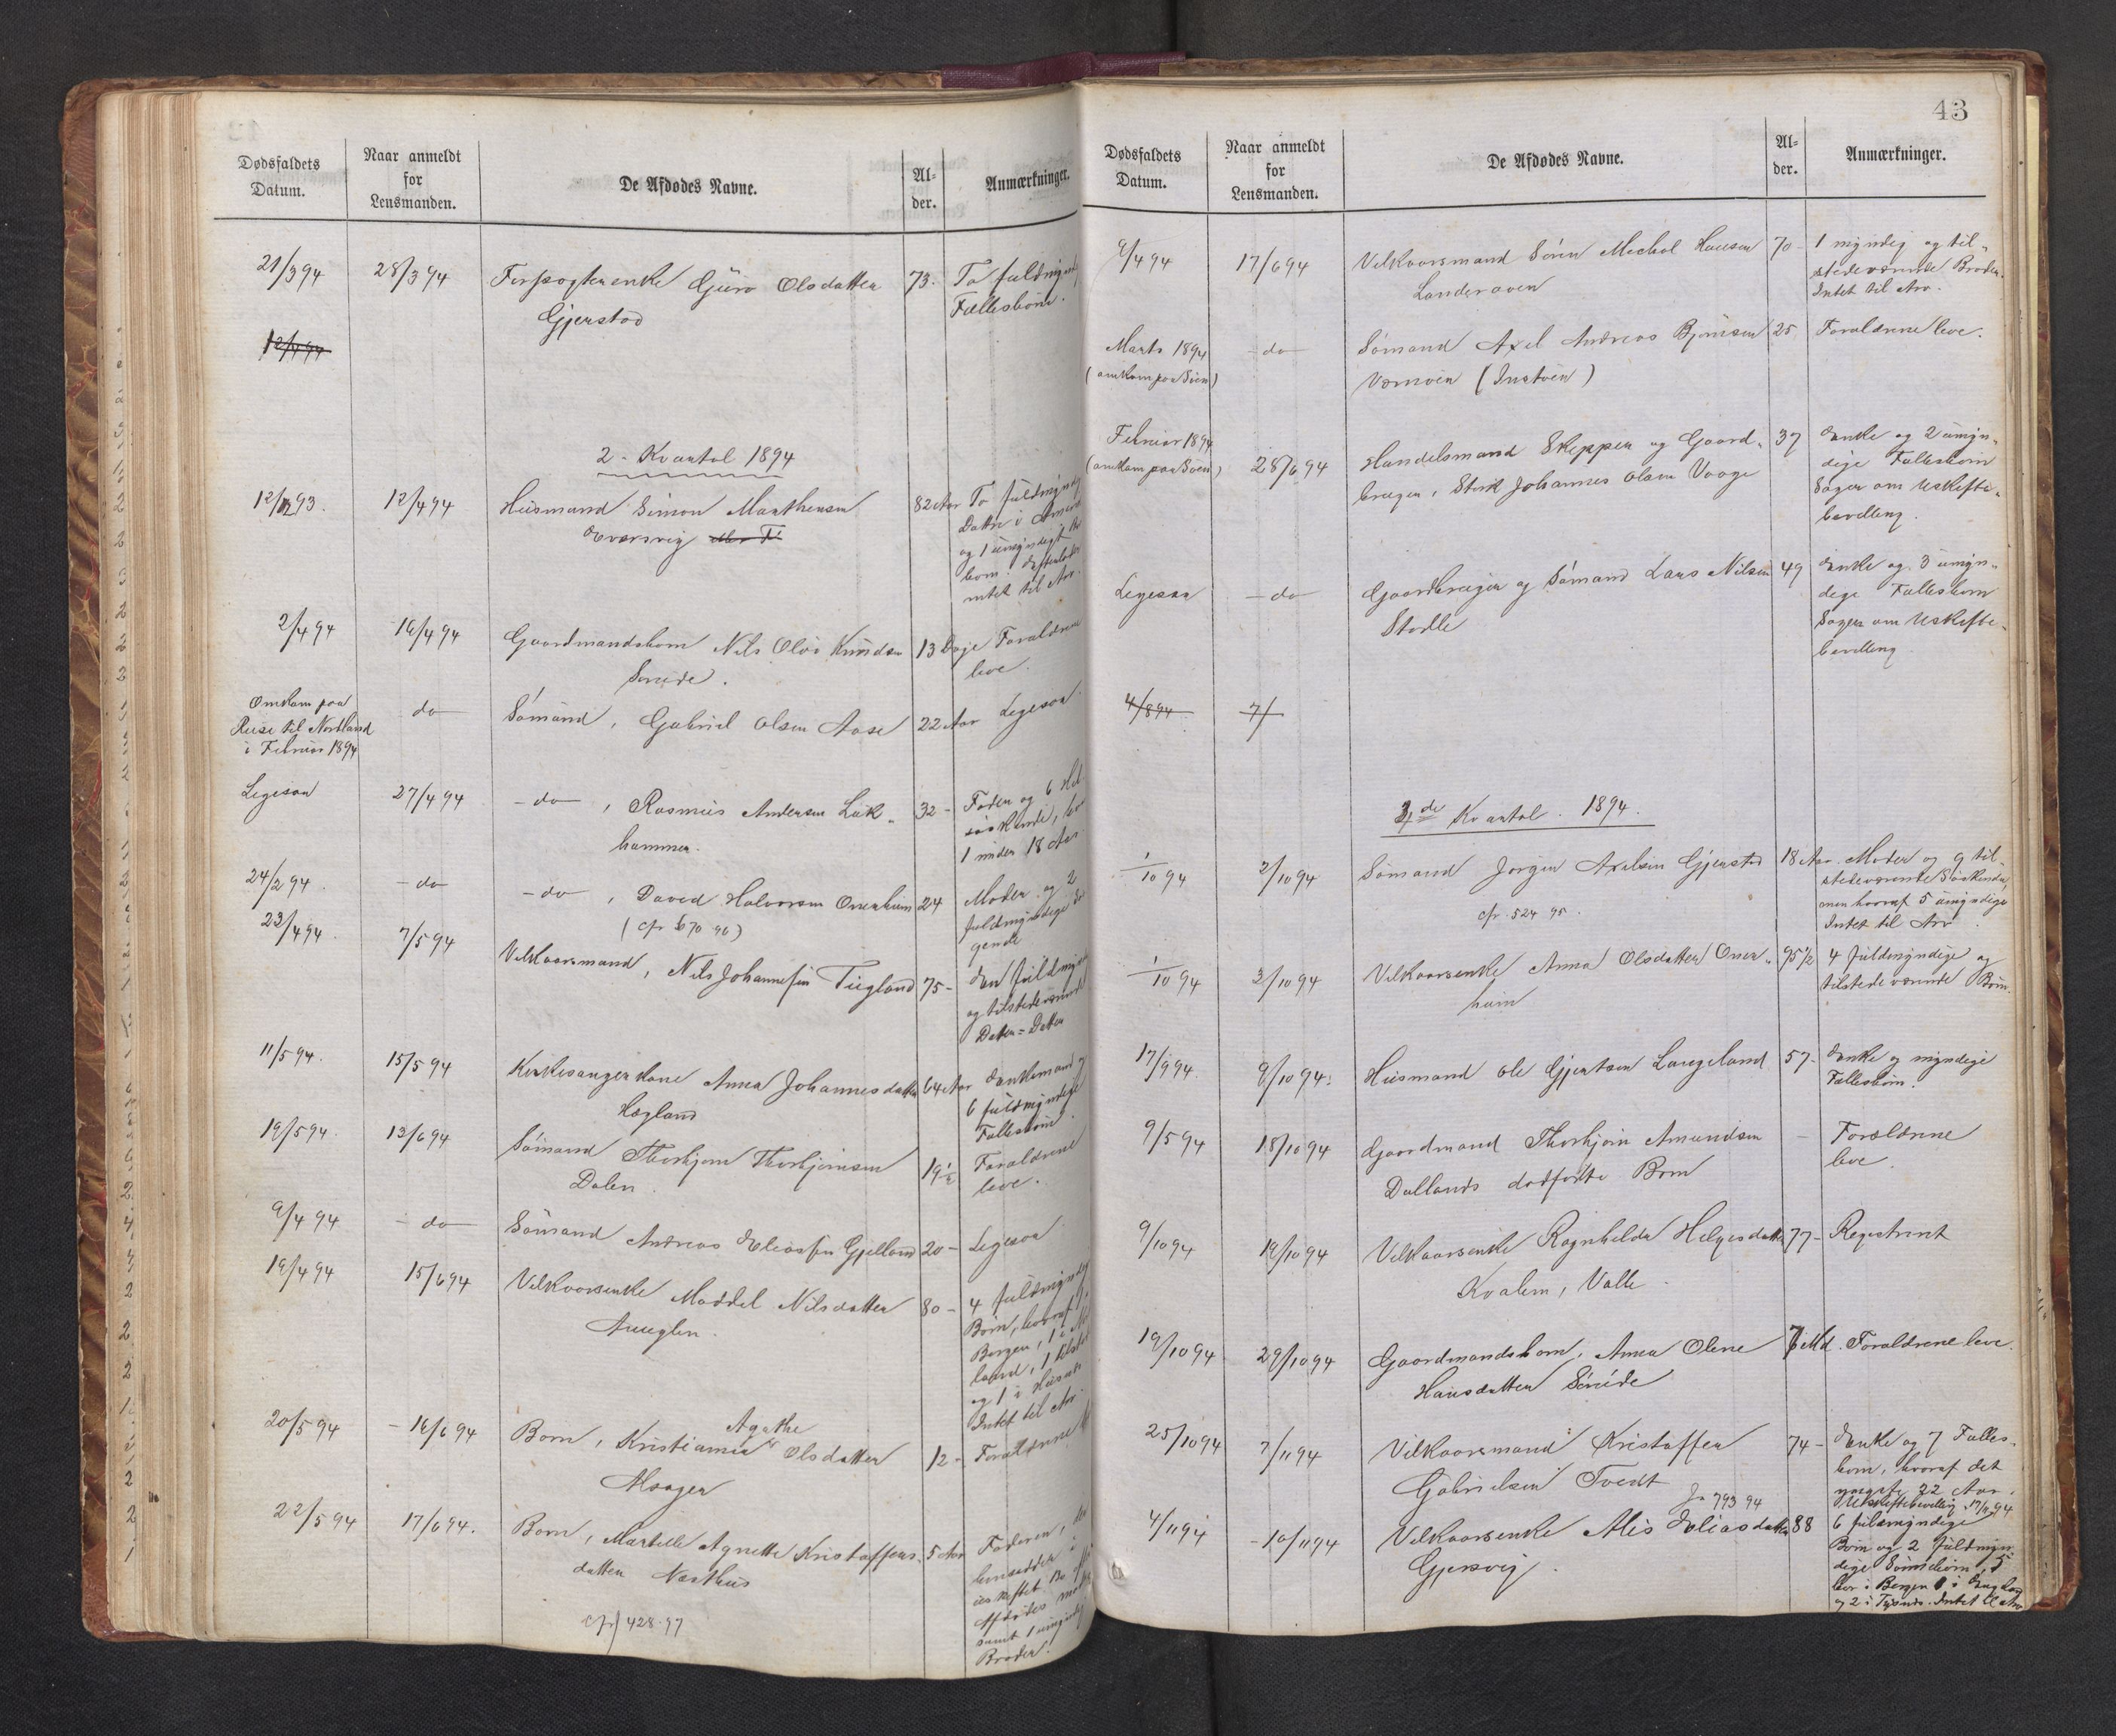 Dødsfaldets
Datum.
Naar anmeldt
for
Lensmanden.
De Afdødes Navne.
Al-
der.
Anmærkninger.
21/3 94 28/3 94 Forpagterenke Guro Olsdatter 73. To fuldmyndige
Gjerstad Fællesbørn.
12/4 94
2. Kvartal 1894
12/12 93. 12/4 94 Husmand Simon Marthensen 82 Aar To fuldmyndige
Døttre i Amerika
og 1 umyndigt
barn. Efterlader
intet til Arv.
2/4 94 16/4 94 Gaardmandsbarn Nils Olai Knudsen 13 Dage Forældrene
leve.
Omkom paa
Reise til Nordland
i Februar 1894
do Sømand, Gabriel Olsen Aase 22 Aar Ligesaa
Ligesaa 27/4 94 - do - , Rasmus Andersen Lük- 32 - Fader og 6 Hel
hammer. søskende,
1 under 18 Aar
24/2 94. - do - do - , David Halvorsen Overheim 24 Moder og 2
(cfr 670 96) fuldmyndige
23/4 94. 7/5 94 Velkaarsmand, Nils Johannesen Tiegland 75 - Een fuldmyndig
og tilstedeværende
Datter = Datter
11/5 94. 15/5 94 Kirkesangerkone Anna Johannesdatter 64 Aar Enkemand og
Hægland 6 fuldmyndige
Fællesbørn.
19/5 94. 13/6 94 Sømand Thorbjørn Thorbjørnsen 19½ Forældrene
Dalen. leve.
9/4 94 - do - Sømand Andreas Eliassen Gjelland 20 - Ligesaa
19/4 94 15/6 94 Velkaarsenke Maddel Nilsdatter 80 - 4 fuldmyndige
Børn, hvoraf 1 i
Bergen, 1 i
land, 1 tilsted
og 1 i Husnæs
Intet til Arv.
20/5 94 - 16/6 94 Agathe
Barn, Kristianna Olsdatter 12 - Forældrene
22/5 94 17/6 94. Barn, Martelle Agnette Kristoffers- 5 Aar Faderen,
datter Næsthus hensidder i
uskiftet Bo efter
Afdødes moder
samt 1 umyndig
Broder.
cfr 428.97
43
Dødsfaldets
Datum.
Naar anmeldt
for
Lensmanden.
De Afdødes Navne.
Al-
der.
Anmærkninger.
9/4 94 17/6 94 Velkaarsmand Søren Mechol Hansen 70 - 1 myndig og til-
Landeraaen stedeværende Broder.
Intet til Arv.
Marts 1894 - do - Sømand Axel Andreas Bjørnsen 25 Forældrene leve.
(omkom paa Søen) Værnøen
Februar 1894
(omkom paa Søen) 28/6 94 Handelsmand Skipper og Gaard- 37 Enke og 2 umyn-
bruger, Sterk Johannes Olsen Vaage dige Fællesbørn
Søger om Uskifte-
bevilling.
Ligesaa - do - Gaardbruger og Sømand Lars Nilsen 49 Enke og 3 umyn-
Stødle dige Fællesbørn
Søger om Uskifte-
bevilling
4/8 94 7/
4de Kvartal. 1894.
1/10 94 2/10 94 Sømand Jørgen Axelsen Gjerstad 18 Aar. Moder og 9 til-
cfr. 524 95. stedeværende Søskende,
men hvoraf 5 umyndige
Intet til Arv.
1/10 94 3/10 94 Velkaarsenke Anna Olsdatter Over- 95½ 4 fuldmyndige og
heim tilstedeværende Børn.
17/9 94 9/10 94. Husmand Ole Gjertsen Langeland 57 - Enke og myndige
Fællesbørn.
9/5 94 18/10 94 Gaardmand Thorbjørn Amundsen - Forældrene
Dallands dødfødte Barn leve.
9/10 94 19/10 94 Velkaarsenke Ragnhilda Helgesdatter 77 - Registreret
Kvalem, Valle
19/10 94 29/10 94 Gaardmandsbarn, Anna Oline 7 Md. Forældrene leve.
Hansdatter Søreide
25/10 94 7/11 94 Velkaarsmand Kristoffer 74 - Enke og 7 Fælles-
Gabrielsen Tvedt børn, hvoraf det
Jn 793 94 yngste 22 Aar.
Uskiftebevilling 17/11 94
4/11 94 - 10/11 94 Velkaarsenke Alis Eliasdatter 88 6 fuldmyndige
Gjersvig. Børn og 2 fuldmyn-
dige Sønnebørn, 5
bor i Bergen 1 i
og 2 i Tysnæs. Intet til Arv